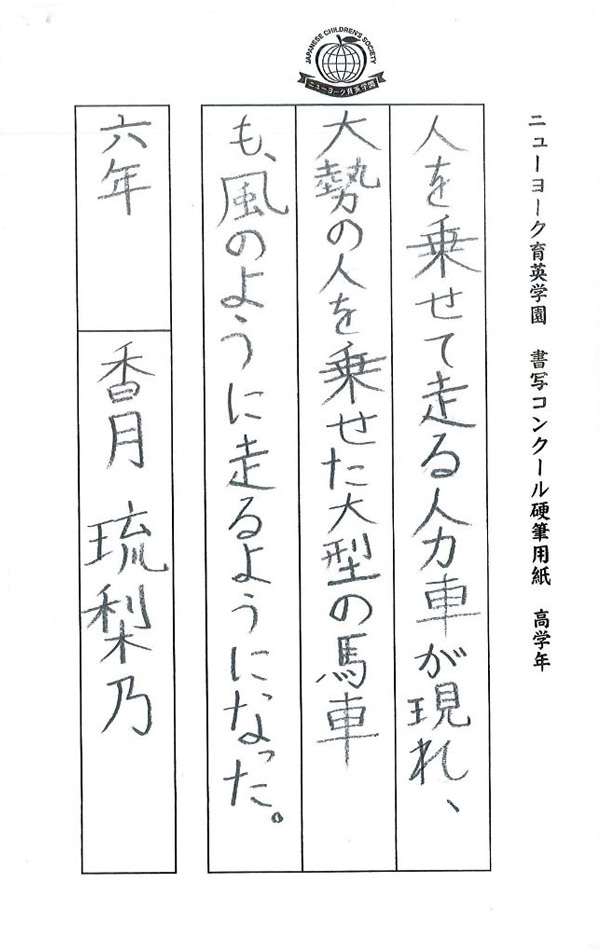 JAPANESE CHILDREN'S SOCIETY
ニューヨーク育英学園
ニューヨーク育英学園　書写コンクール硬筆用紙　高学年
人を乗せて走る人力車が現れ、
大勢の人を乗せた大型の馬車
も、風のように走るようになった。
六年
香月　琉梨乃